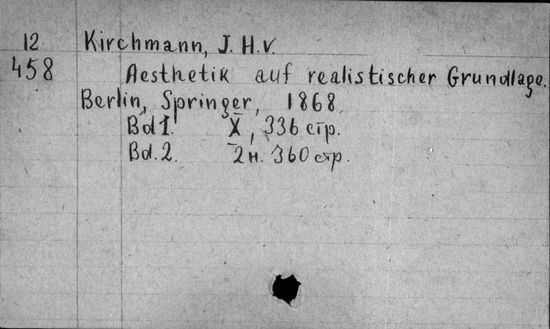 12 Kirchmann, J. H. v.
458 Aesthetik auf realistischer Grundlage.
Berlin, Springer, 1868.
Bd 1. X, 336 стр.
Bd. 2. 2 н. 360 стр.